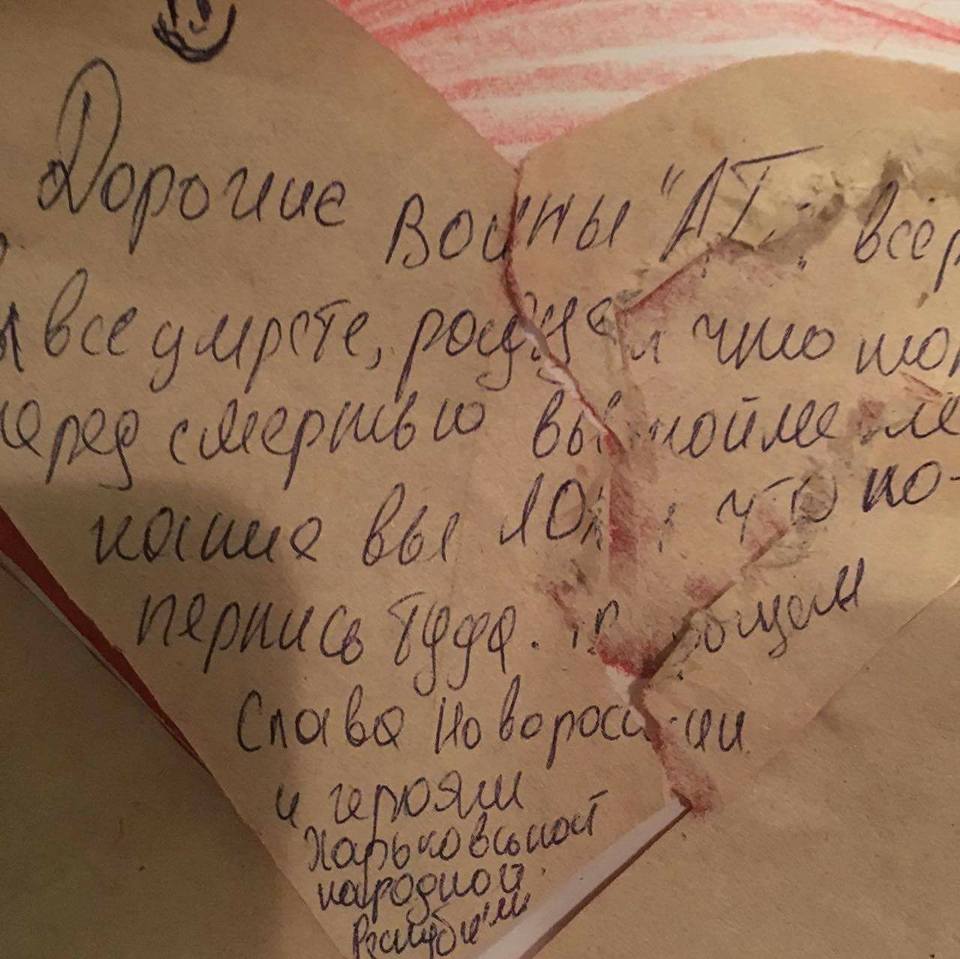 Дорогие воины "АТ
вы все умрете, что
перед смертью вы поймете
какие вы что по-
перлись туда.
Слава Новороссии
и героям
Харьковской
народной
Республики